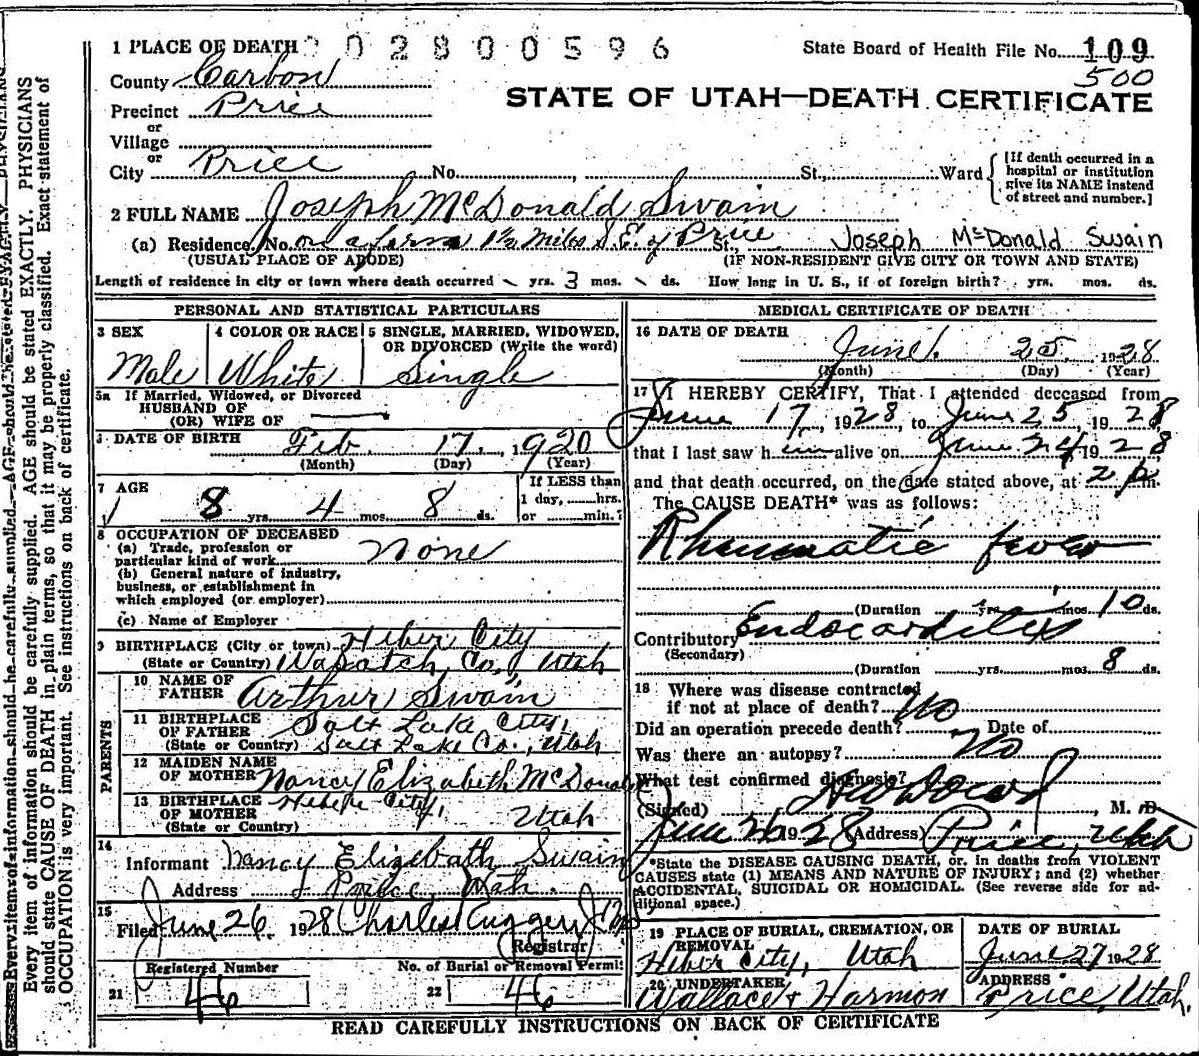 1 PLACE OF DEATH 2 0 2 8 0 0 5 9 6
State Board of Health File No. 109
500
County Carbon
STATE OF UTAH—DEATH CERTIFICATE
Precinct Price
or
Village
or
City Price No. St., Ward
[If death occurred in a hospital or institution give its NAME instead of street and number.]
2 FULL NAME Joseph McDonald Swain
(a) Residence, No. on a farm 1½ Miles S.E. of Price St., Joseph McDonald Swain
(USUAL PLACE OF ABODE) (IF NON-RESIDENT GIVE CITY OR TOWN AND STATE)
Length of residence in city or town where death occurred yrs. 3 mos. ds. How long in U. S., if of foreign birth? yrs. mos. ds.
PERSONAL AND STATISTICAL PARTICULARS
3 SEX Male
4 COLOR OR RACE White
5 SINGLE, MARRIED, WIDOWED, OR DIVORCED (Write the word) Single
5a If Married, Widowed, or Divorced
HUSBAND OF
(OR) WIFE OF
6 DATE OF BIRTH Feb. 17. 1920
(Month) (Day) (Year)
7 AGE 8 yrs. 4 mos. 8 ds.
If LESS than 1 day, hrs. or min.?
8 OCCUPATION OF DECEASED
(a) Trade, profession or particular kind of work None
(b) General nature of industry, business, or establishment in which employed (or employer)
(c) Name of Employer
9 BIRTHPLACE (City or town) Heber City
(State or Country) Wasatch Co., Utah
PARENTS
10 NAME OF FATHER Arthur Swain
11 BIRTHPLACE OF FATHER Salt Lake City,
(State or Country) Salt Lake Co., Utah
12 MAIDEN NAME OF MOTHER Nancy Elizabeth McDonald
13 BIRTHPLACE OF MOTHER Heber City,
(State or Country) Utah
14
Informant Nancy Elizebath Swain
Address Price, Utah.
15
Filed June 26, 1928
Registrar
Registered Number No. of Burial or Removal Permit
21 46 22 46
MEDICAL CERTIFICATE OF DEATH
16 DATE OF DEATH
June 25 1928
(Month) (Day) (Year)
17 I HEREBY CERTIFY, That I attended deceased from
June 17, 1928, to June 25, 1928
that I last saw him alive on June 24 1928
and that death occurred, on the date stated above, at 2 p.m.
The CAUSE DEATH* was as follows:
Rheumatic fever
(Duration yrs. mos. 10 ds.
Contributory Endocarditis
(Secondary)
(Duration yrs. mos. 8 ds.
18 Where was disease contracted if not at place of death?
No
Did an operation precede death? Date of
Was there an autopsy? No
What test confirmed diagnosis?
(Signed) M. D.
June 26 1928 (Address) Price, Utah
*State the DISEASE CAUSING DEATH, or. in deaths from VIOLENT
CAUSES state (1) MEANS AND NATURE OF INJURY; and (2) whether
ACCIDENTAL, SUICIDAL OR HOMICIDAL. (See reverse side for ad-
ditional space.)
19 PLACE OF BURIAL, CREMATION, OR REMOVAL
Heber City, Utah
DATE OF BURIAL
June 27 1928
20 UNDERTAKER
Wallace & Harmon
ADDRESS
Price, Utah.
READ CAREFULLY INSTRUCTIONS ON BACK OF CERTIFICATE
Every item of information should be carefully supplied. AGE should be stated EXACTLY. PHYSICIANS
should state CAUSE OF DEATH in plain terms, so that it may be properly classified. Exact statement of
OCCUPATION is very important. See instructions on back of certificate.